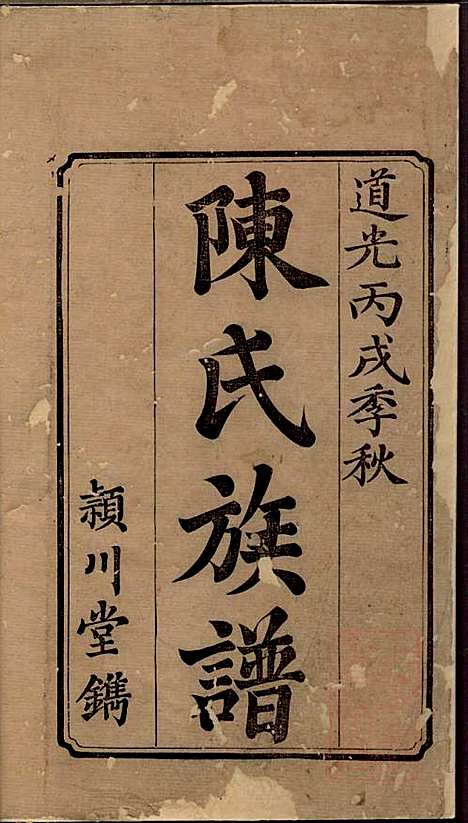 道光丙戌季秋
陳氏族譜
頴川堂鐫